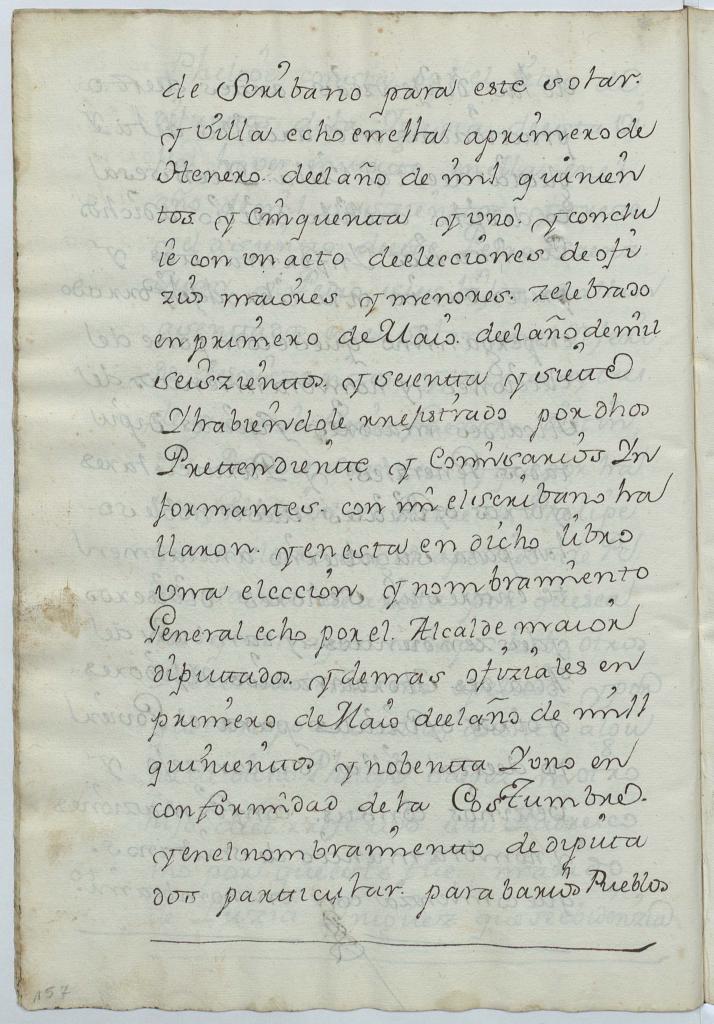 de Scribano para este solar.
y Villa echo en ella a primero de
Henero. deel año de mil quinien
tos. y Cinquentta y uno. y conclu
ie con un acto de elecciones de ofi
zios maiores y menores. zelebrado
en primero de Maio. deel año de mil
seiszienttos. y sesentta y siette
Y habiendole rrexistrado por dhos
Prettendientte y Comisarios Yn
formantes. con mi el scribano ha
llaron. y en esta en dicho libro
una eleccion y nombramiento
General echo por el. Alcalde maior
diputtados. y demas ofiziales en
primero de Maio deel año de mill
quinienttos y nobentta Y uno en
conformidad de la Costumbre.
y en el nombramientto de diputa
dos partticular. para barios Pueblos
157